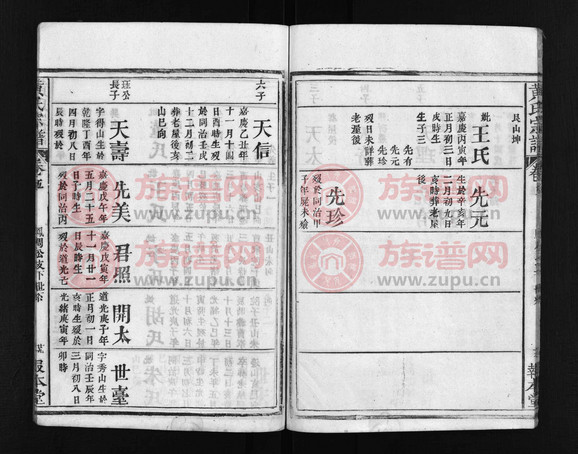 黃氏宗譜
艮山坤
妣王氏
嘉慶丙寅年
正月初三日
戌時生歿
生子三
先有
先元
先珍
後歿日未詳葬
老屋後
先元
生於辛亥年
二月初九日
寅時葬老屋
後
先珍
歿於同治甲
子年屍未殮
報本堂
六子
天信
嘉慶乙丑年
十一月十四
日酉時生歿
於同治壬戌
十二月二日
葬老屋後亥
山巳向
玨公
長子
天壽
字得山生於
乾隆丁酉年
四月初八日
辰時歿於
先美
嘉慶戊午年
五月二十五
日子時生
歿於同治丙
君照
嘉慶戊寅年
十一月廿一
日辰時生
歿於道光
開太
道光庚子年
正月初一日
亥時生歿於
光緒庚寅年
世臺
字秀山生於
同治壬辰年
三月初八日
卯時
黃氏宗譜
報本堂
族谱网
www.zupu.cn
族谱网
www.zupu.cn
族谱网
www.zupu.cn
族谱网
www.zupu.cn